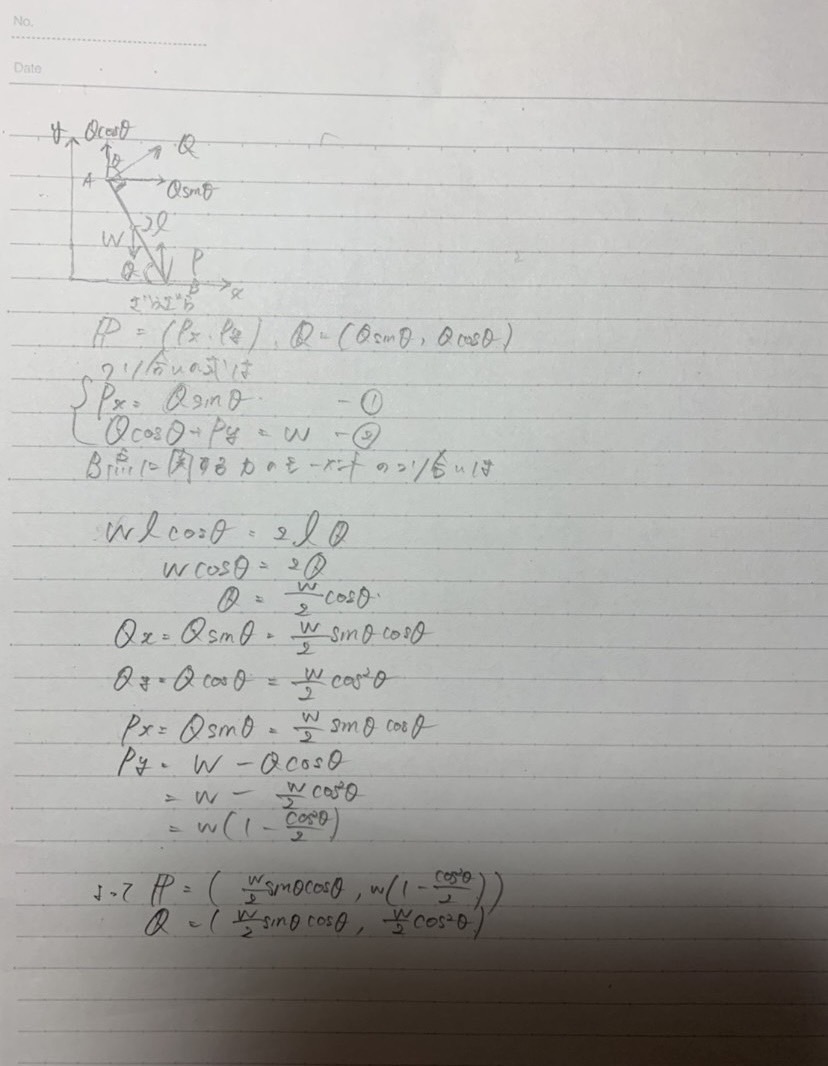 No.
Date
y Qcosθ Q
θ
A Qsinθ
2l
W P
θ B x
ざらざら
P = (Px, Py), Q = (Qsinθ, Qcosθ)
つり合いの式は
Px = Qsinθ -①
Qcosθ + Py = W -②
B点に関する力のモーメントのつり合いは
Wlcosθ = 2lQ
Wcosθ = 2Q
Q = W/2 cosθ
Qx = Qsinθ = W/2 sinθcosθ
Qy = Qcosθ = W/2 cos²θ
Px = Qsinθ = W/2 sinθcosθ
Py = W - Qcosθ
= W - W/2 cos²θ
= W(1 - cos²θ/2)
よって P = (W/2 sinθcosθ, W(1 - cos²θ/2))
Q = (W/2 sinθcosθ, W/2 cos²θ)